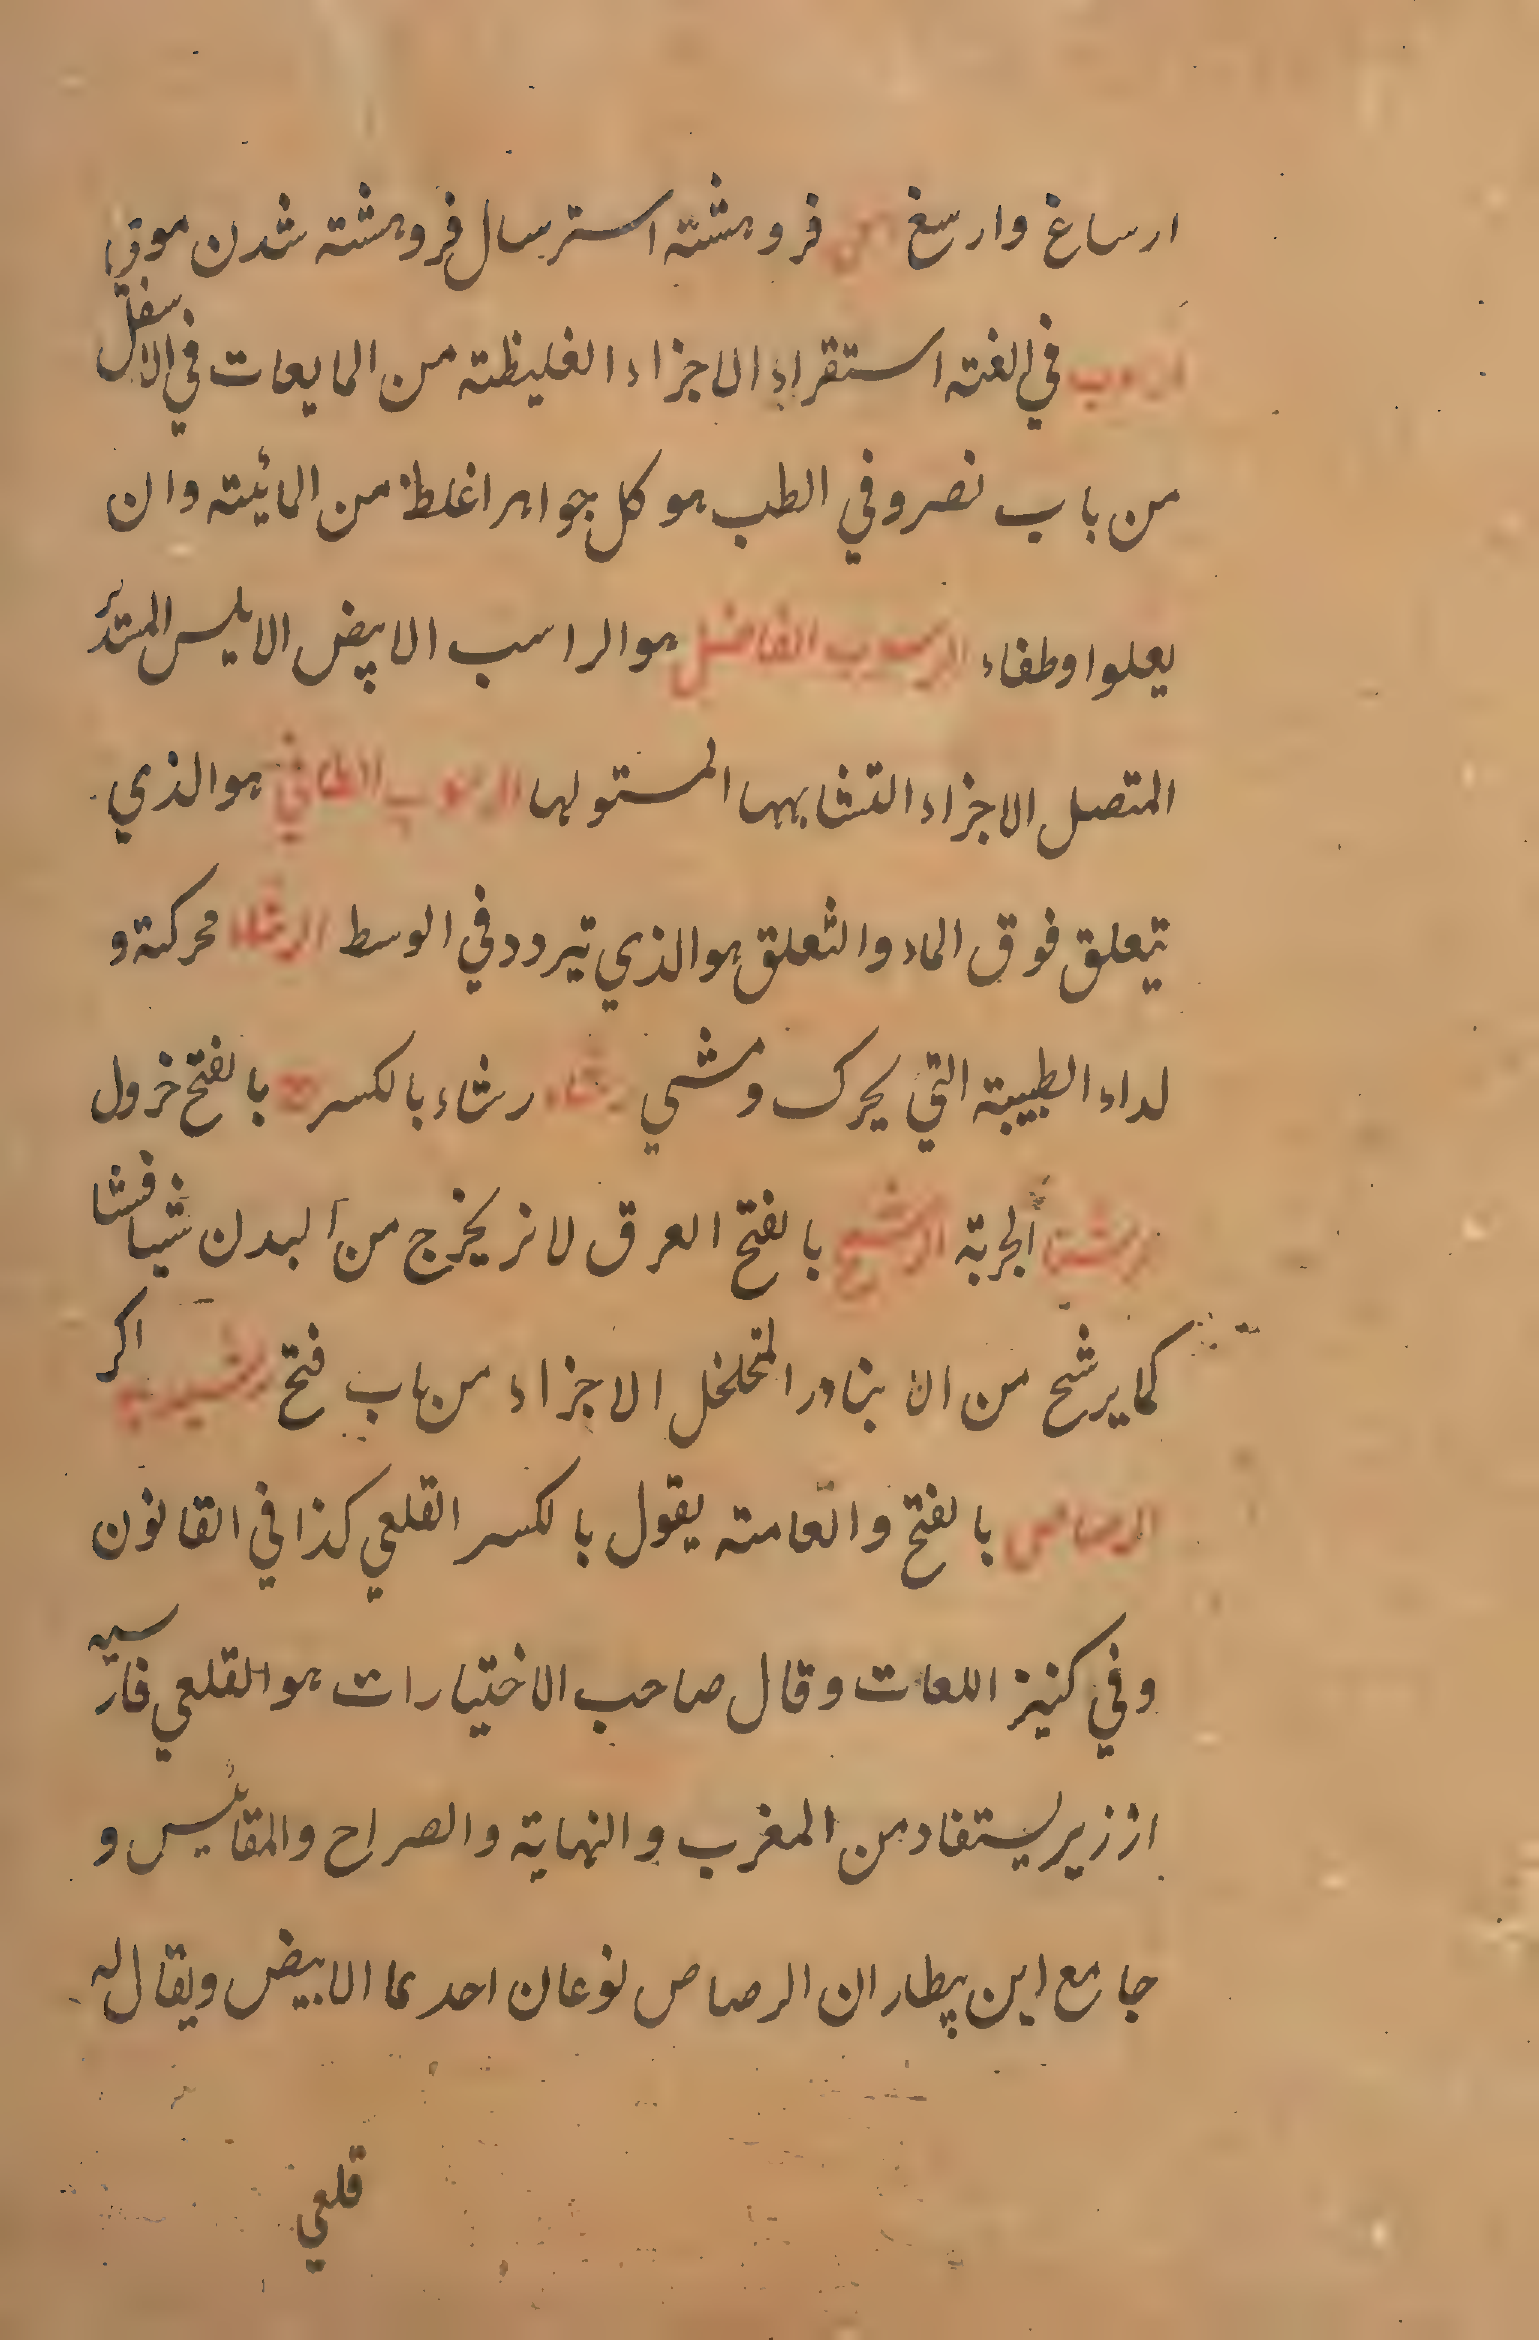 ارساغ وارسغ فروهشته استرسال فروهشته شدن موی
رسوب في الغته استقراء الاجزاء الغليظته من المايعات في الاسفل
من باب نصر وفي الطب هو كل جواهر اغلظ من المائيته وان
يعلوا وطفاء الرسوب الفاضل هو الراسب الابيض الايلس المستدير
المتصل الاجزاء التشابهها المستولها الرسوب الطافي هو الذي
يتعلق فوق الماء والتعلق هو الذي تيردد في الوسط الرشاء محركة و
لداء الطبيبته التي يحرك ومشي رشاء رشاء بالكسر بالفتح خرول
الجربته الرشح بالفتح العرق لانه يخرج من البدن شيافشا
كما يرشح من الانبادر المتخلخل الاجزاء من باب فتح اكر
الرصاص بالفتح والعامته يقول بالكسر القلعي كذا في القانون
وفي كنيز اللعات وقال صاحب الاختيارات هو القلعي فارسيه
ارزير ليستفاد من المغرب والنهاية والصراح والمقائيس و
جامع ابن بيطار ان الرصاص نوعان احدعا الابيض ويقال له
قلعي